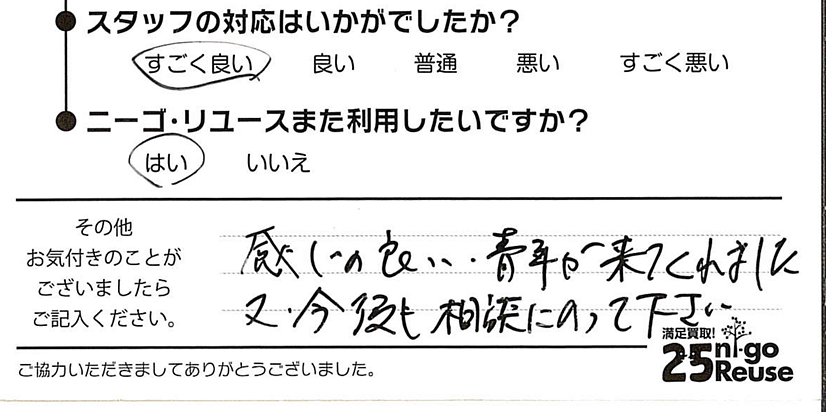 スタッフの対応はいかがでしたか?
すごく良い 良い 普通 悪い すごく悪い
ニーゴ・リユースまた利用したいですか?
はい いいえ
その他
お気付きのことが
ございましたら
ご記入ください。
感じの良い、青年が来てくれました
又、今後も相談にのって下さい
満足買取!
25 ni-go
Reuse
ご協力いただきましてありがとうございました。